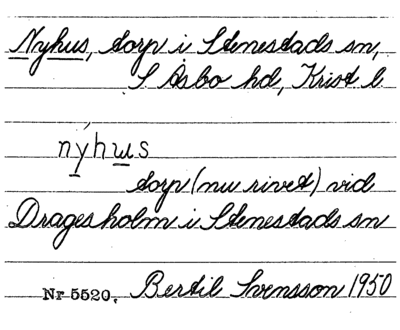 Nyhus, torp i Stenestads sn,
S Åsbo hd, Krist l.
nyhus
torp (nu rivet) vid
Dragesholm i Stenestads sn
Nr 5520. Bertil Svensson 1950